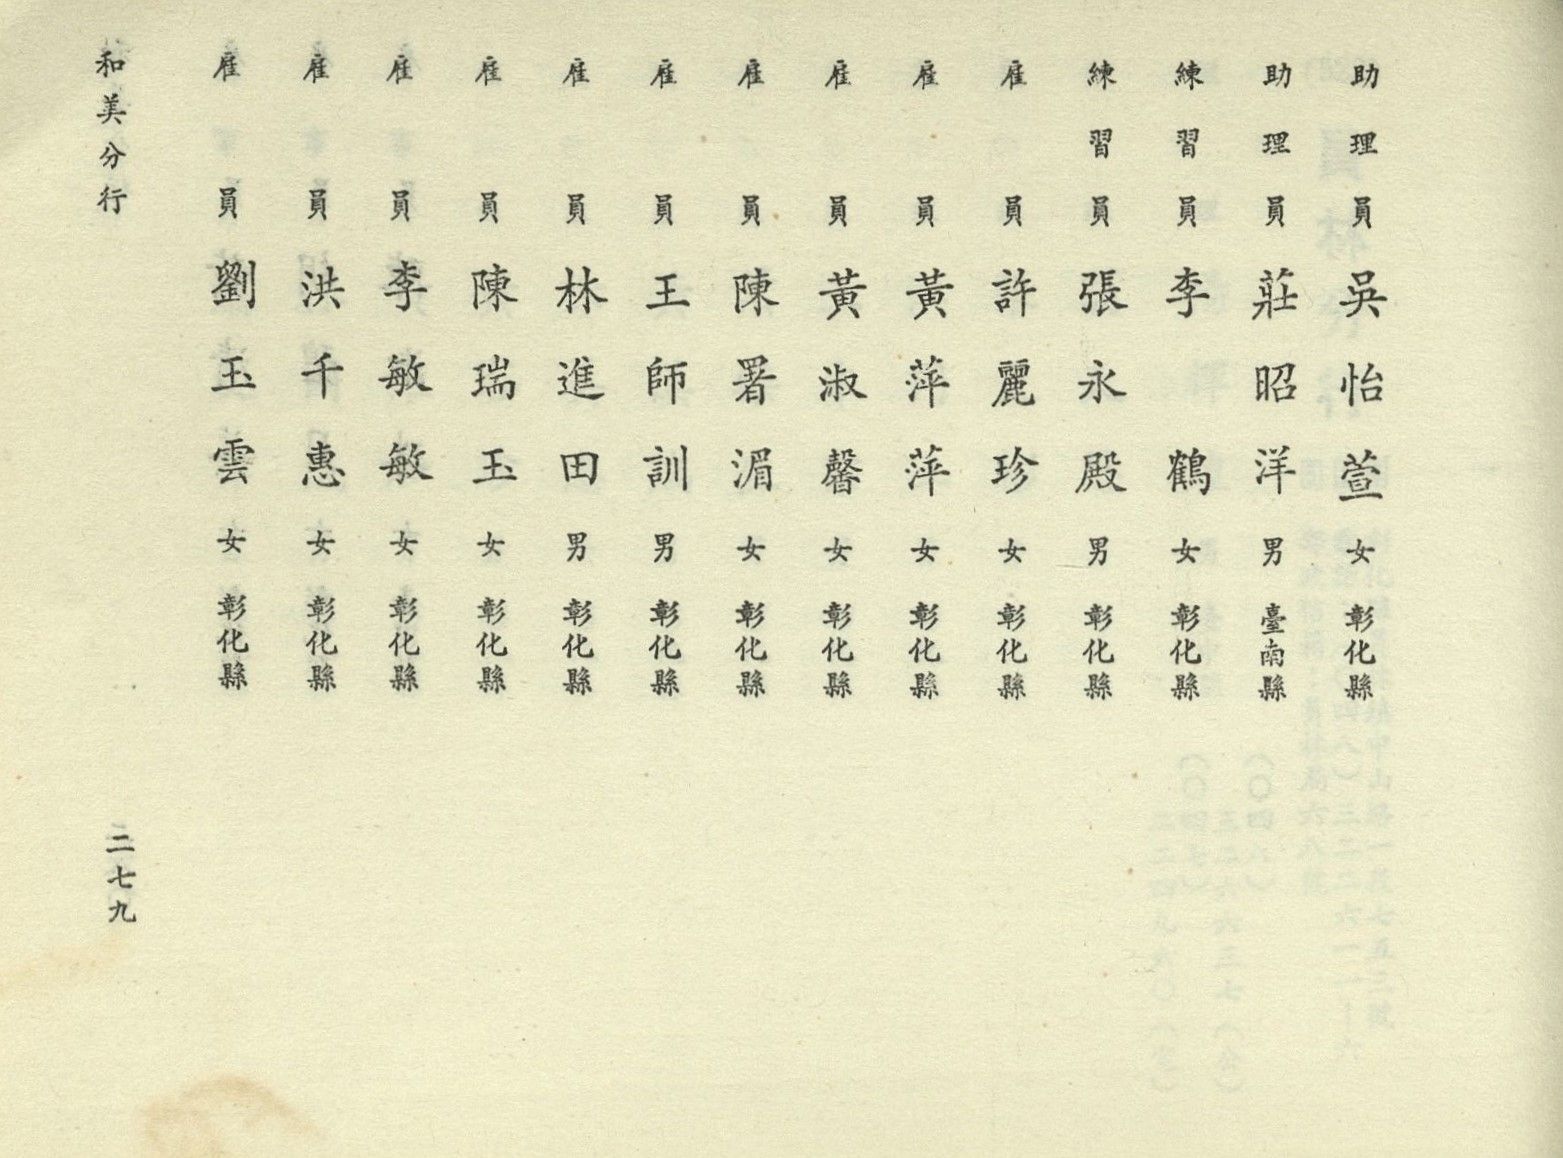 助理員 吳怡萱 女 彰化縣
助理員 莊昭洋 男 臺南縣
練習員 李鶴 女 彰化縣
練習員 張永殿 男 彰化縣
雇員 許麗珍 女 彰化縣
雇員 黃萍萍 女 彰化縣
雇員 黃淑馨 女 彰化縣
雇員 陳署湄 女 彰化縣
雇員 王師訓 男 彰化縣
雇員 林進田 男 彰化縣
雇員 陳瑞玉 女 彰化縣
雇員 李敏敏 女 彰化縣
雇員 洪千惠 女 彰化縣
雇員 劉玉雲 女 彰化縣
和美分行
二七九